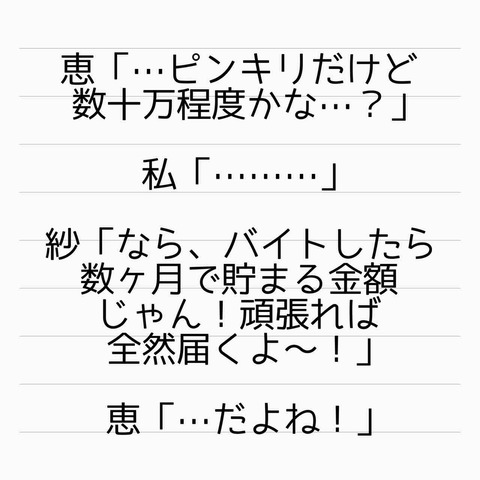 恵「…ピンキリだけど
数十万程度かな…？」
私「………」
紗「なら、バイトしたら
数ヶ月で貯まる金額
じゃん！頑張れば
全然届くよ〜！」
恵「…だよね！」